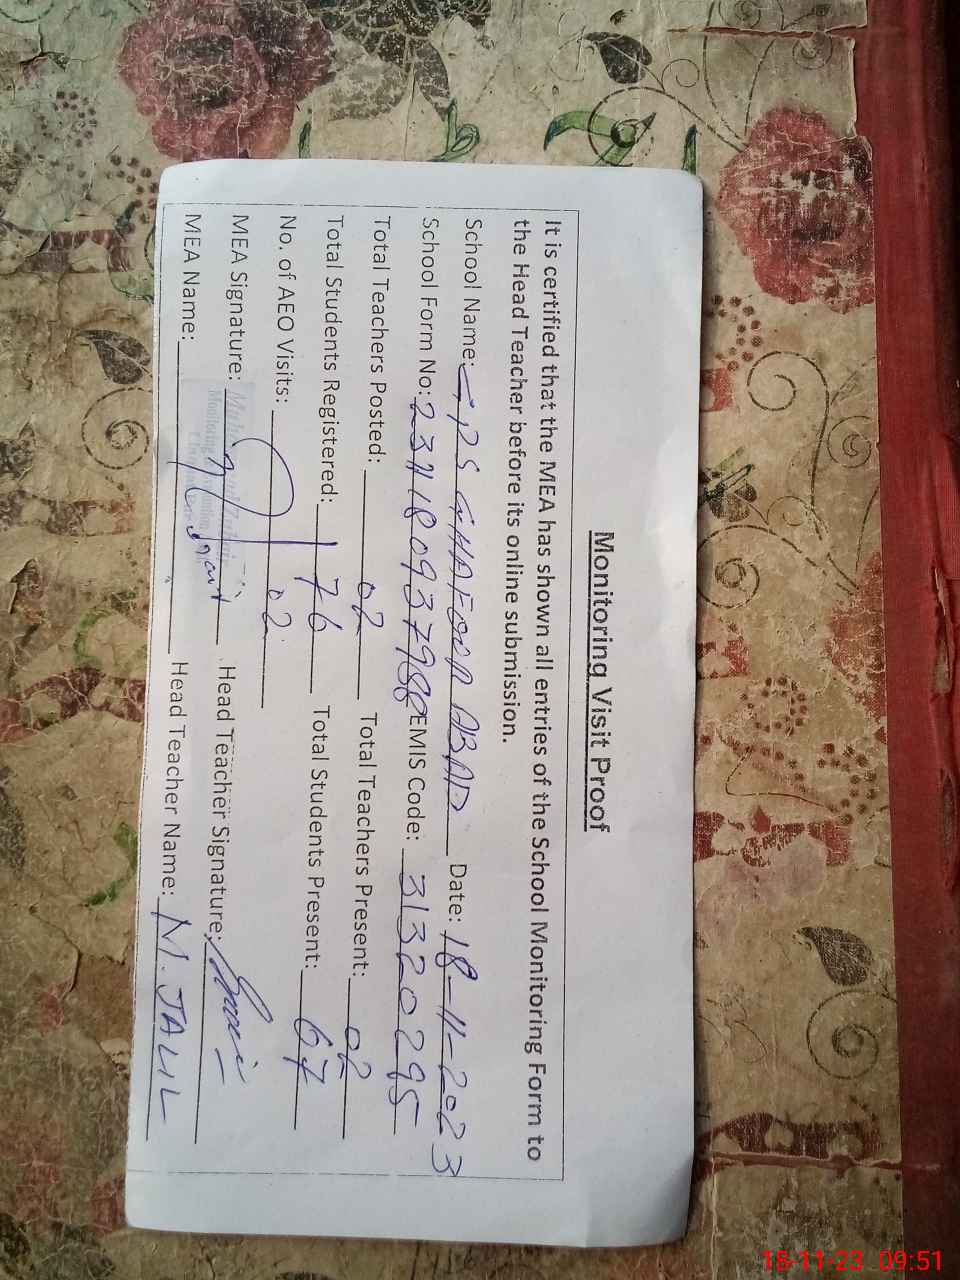 Monitoring Visit Proof
It is certified that the MEA has shown all entries of the School Monitoring Form to
the Head Teacher before its online submission.
School Name: PS GHAFOOR ABAD Date: 18-11-2023
School Form No: 2311180937988 EMIS Code: 31320295
Total Teachers Posted: 02 Total Teachers Present: 02
Total Students Registered: 76 Total Students Present: 67
No. of AEO Visits: 02
MEA Signature: Head Teacher Signature:
MEA Name: Head Teacher Name: M. JALIL
18-11-23 09:51